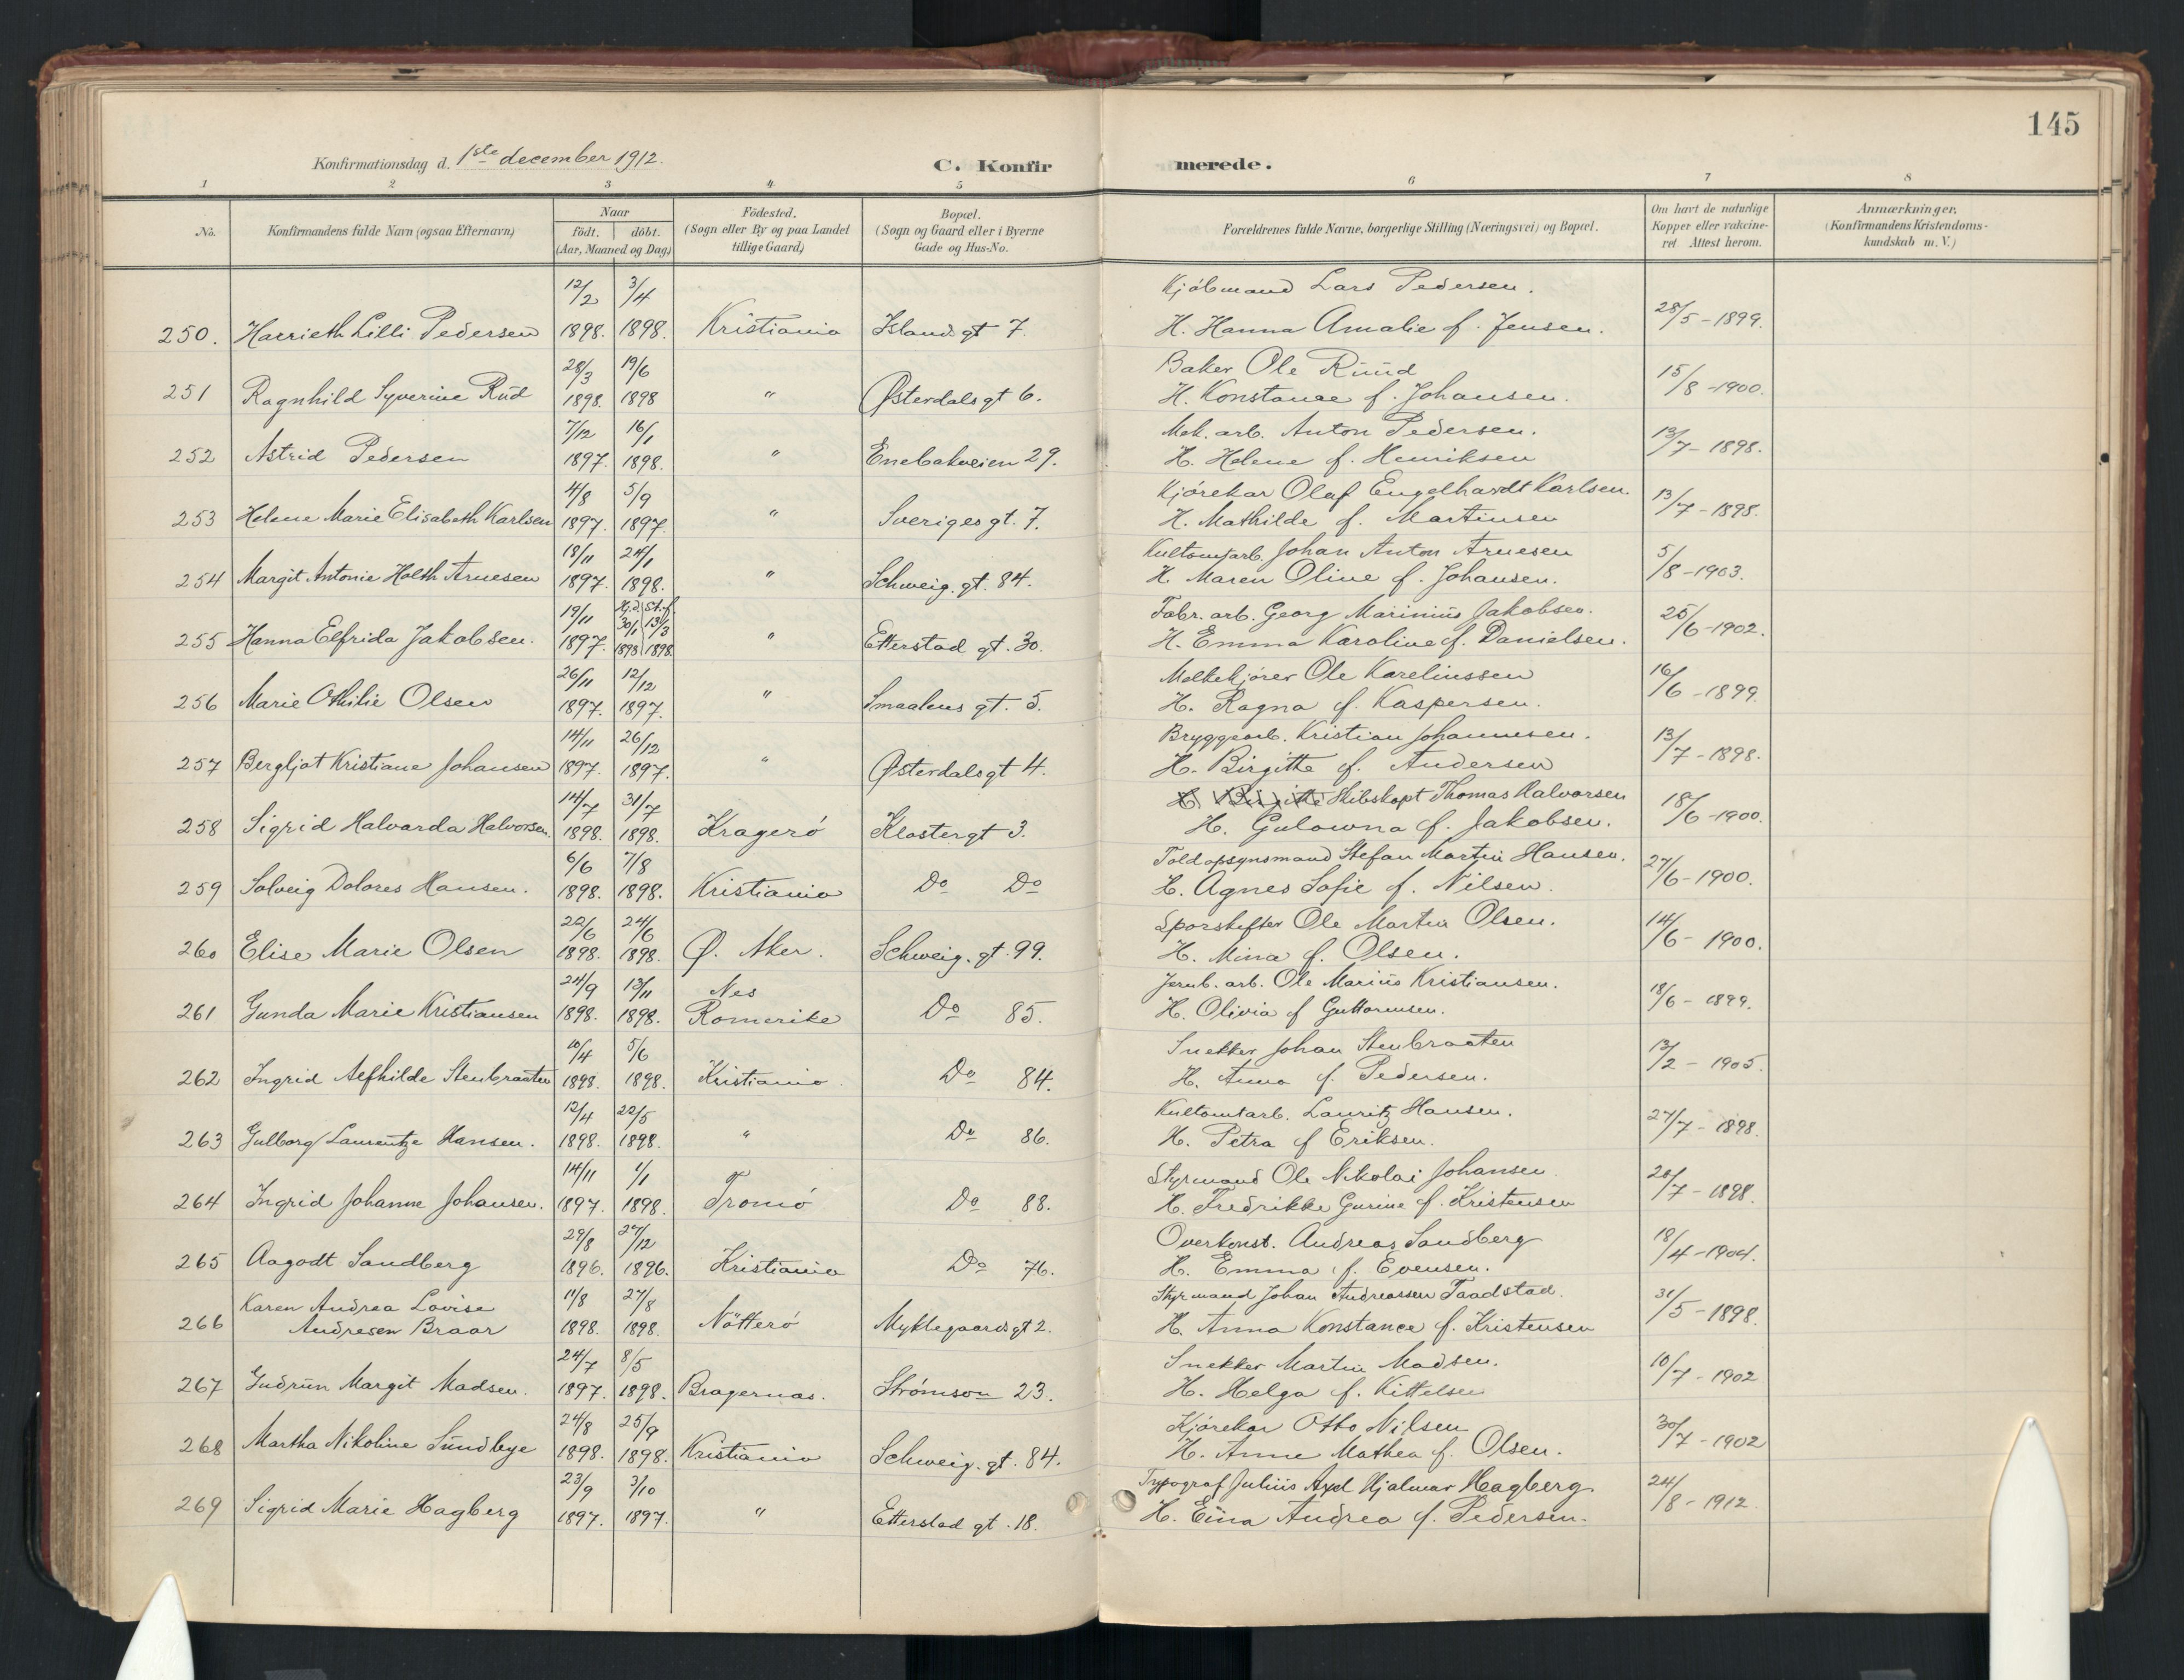 145
Konfirmationsdag d. 1ste december 1912.
C. Konfir merede.
1 2 3 4 5 6 7 8
No.
Konfirmandens fulde Navn (ogsaa Efternavn)
Naar
födt. döbt.
(Aar, Maaned og Dag)
Födested.
(Sogn eller By og paa Landet
tillige Gaard)
Bopæl.
(Sogn og Gaard eller i Byerne
Gade og Hus-No.
Forældrenes fulde Navne, borgerlige Stilling (Næringsvei) og Bopæl.
Om havt de naturlige
Kopper eller vakcine-
ret Attest herom.
Anmærkninger.
(Konfirmandens Kristendoms-
kundskab m. V.)
12/2 3/4 Kjöbmand Lars Pedersen.
250. Harrieth Lilli Pedersen 1898. 1898. Kristiania Islands gt 7. H. Hanna Amalie f. Jensen. 28/5-1899.
28/3 19/6 Baker Ole Ruud
251 Ragnhild Syverine Rud 1898. 1898 " Østerdalsgt 6. H. Konstance f. Johansen. 15/8-1900.
7/12 16/1 Mek. arb. Anton Pedersen.
252 Astrid Pedersen 1897. 1898. " Enebakveien 29. H. Helene f. Henriksen 13/7-1898.
4/8 5/9 Kjörekar Olaf Engelhardt Karlsen.
253 Helene Marie Elisabeth Karlsen 1897. 1897. " Sveriges gt. 7. H. Mathilde f. Martinsen 13/7-1898.
18/11 24/1 Kultomtarb. Johan Anton Arnesen
254 Margit Antonie Holth Arnesen 1897. 1898. " Schweig. gt. 84. H. Maren Oline f. Johansen. 5/8-1903.
19/11 Hj.d. St.f. 30/1 13/3 Fabr. arb. Georg Marinius Jakobsen.
255 Hanna Elfrida Jakobsen. 1897. 1898 1898. " Etterstad gt. 30. H. Emma Karoline f. Danielsen. 25/6-1902.
26/11 12/12 Melkekjörer Ole Kareliussen
256 Marie Othilie Olsen 1897. 1897. " Smaalens gt. 5. H. Ragna f. Kaspersen. 16/6-1899.
14/11 26/12 Bryggearb. Kristian Johannesen.
257 Bergljot Kristiane Johansen 1897. 1897. " Østerdalsgt 4. H. Birgitte f. Andersen 13/7-1898.
14/7 31/7 H. Birgitte Skibskapt Thomas Halvorsen
258 Sigrid Halvarda Halvorsen. 1898. 1898. Kragerö Klostergt 3. H. Gulowna f. Jakobsen. 18/6-1900.
6/6 7/8 Toldopsynsmand Stefan Martin Hansen.
259 Solveig Dolores Hansen. 1898. 1898. Kristiania Do Do H. Agnes Sofie f. Nilsen. 27/6-1900.
22/6 24/6 Sporskifter Ole Martin Olsen.
260 Elise Marie Olsen 1898. 1898. Ø. Aker. Schweig. gt. 99. H. Mina f. Olsen. 14/6-1900.
24/9 13/11 Nes Jernb. arb. Ole Marius Kristiansen.
261 Gunda Marie Kristiansen 1898. 1898. Romerike Do 85. H. Olivia f Guttormsen. 18/6-1899.
10/4 5/6 Snekker Johan Stenbraaten
262 Ingrid Alfhilde Stenbraaten 1898. 1898. Kristiania. Do 84. H. Anna f. Pedersen. 13/2-1905.
12/4 22/5 Kultomtarb. Lauritz Hansen.
263 Gulborg Laurentze Hansen. 1898. 1898. " Do 86. H. Petra f Eriksen. 27/7-1898.
14/11 1/1 Styrmand Ole Nikolai Johansen.
264 Ingrid Johanne Johansen. 1897. 1898. Tromö Do 88. H. Fredrikke Gurine f. Kristensen 20/7-1898.
29/8 27/12 Overkonst. Andreas Sandberg
265 Aagodt Sandberg 1896. 1896. Kristiania Do 76. H. Emma f. Evensen. 18/4-1904.
Karen Andrea Lovise 11/8 27/8 Styrmand Johan Andreassen Taadstad.
266 Andresen Braar 1898. 1898. Nötterö Myklegaards gt 2. H. Anna Konstance f. Kristensen 31/5-1898.
24/7 8/5 Snekker Martin Madsen.
267 Gudrun Margit Madsen. 1897. 1898. Bragernas. Strömson 23. H. Helga f. Kittelsen 10/7-1902
24/8 25/9 Kjörekar Otto Nilsen
268 Martha Nikoline Sundbye 1898. 1898. Kristiania Schweig. gt. 84. H. Anne Mathea f. Olsen. 30/7-1902
23/9 3/10 Typograf Julius Axel Hjalmar Hagberg
269 Sigrid Marie Hagberg 1897. 1897. " Etterstad gt. 18. H. Eina Andrea f. Pedersen. 24/8-1912.